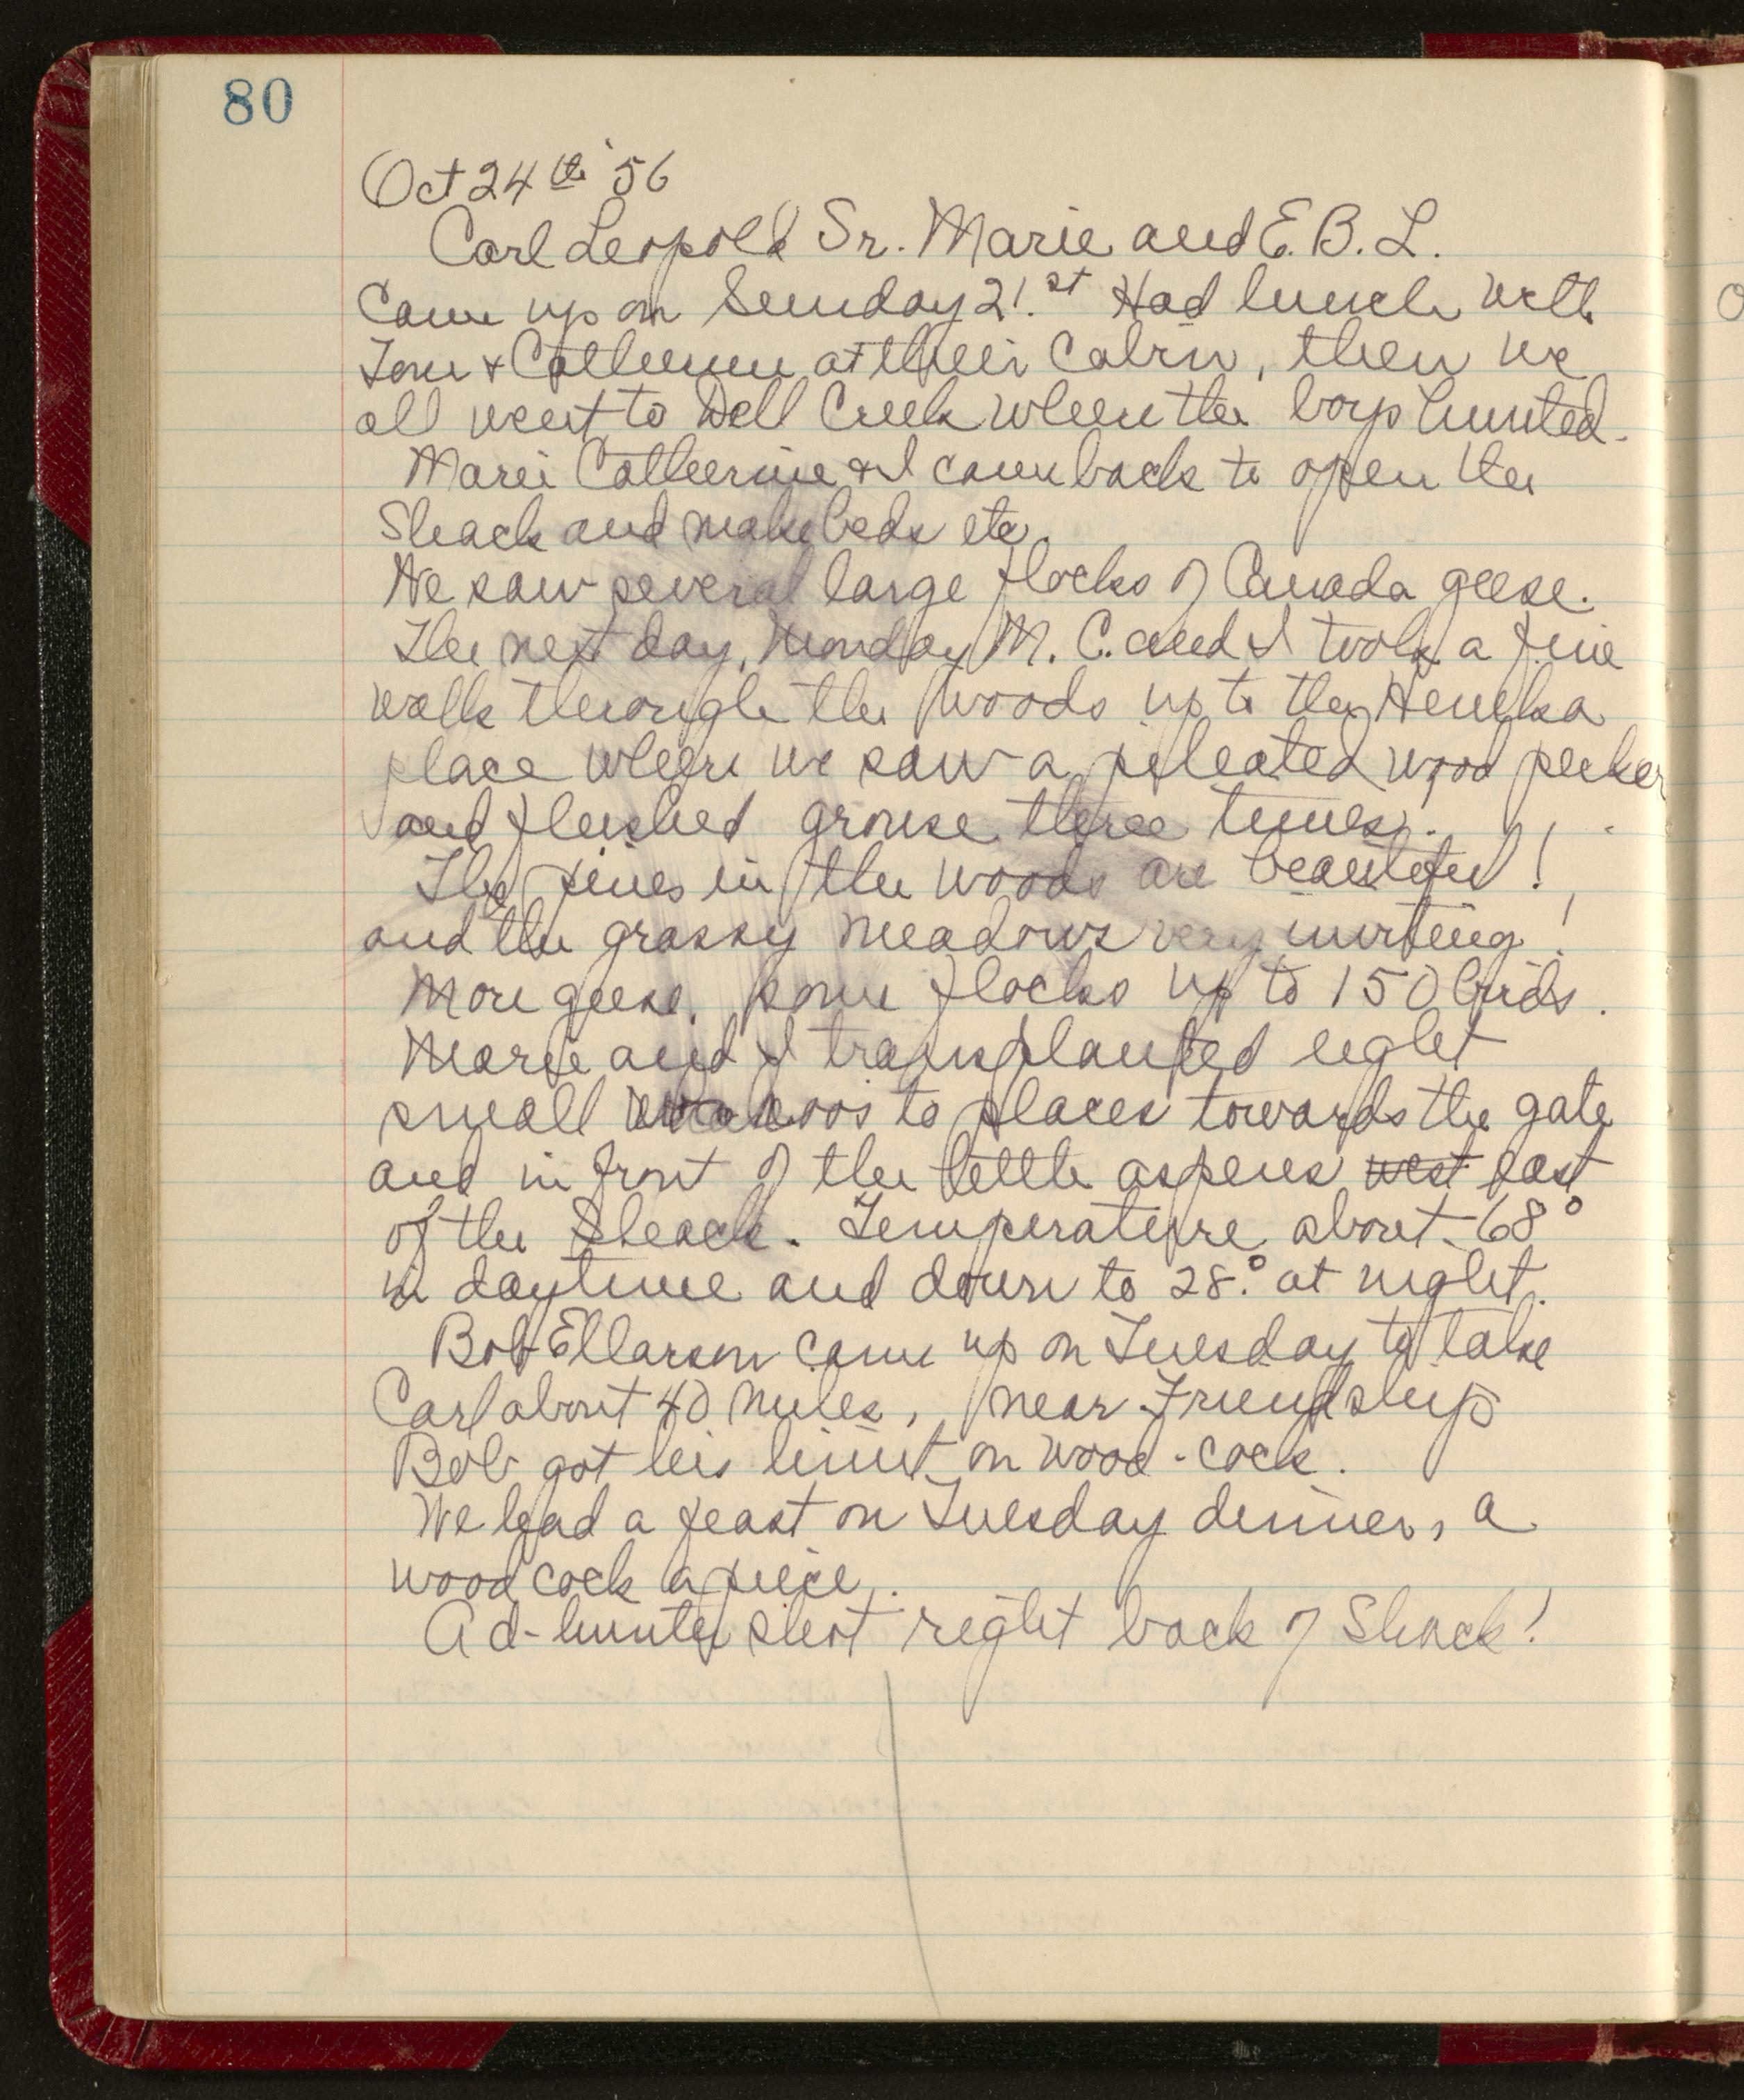 80
Oct 24th '56
Carl Leopold Sr. Marie and E. B. L.
Came up on Sunday 21.st Had lunch with
Tom & Catherine at their Cabin, then we
all went to Dell Creek where the boys hunted.
Marie Catherine & I came back to open the
Shack and make beds etc.
We saw several large flocks of Canada geese.
The next day, Monday M. C. and I took a fine
walk through the woods up to the
place where we saw a pileated wood pecker
and flushed grouse three times.
The pines in the woods are beautiful!
and the grassy meadows very inviting!
More geese, some flocks up to 150 birds.
Marie and I transplanted eight
small to places towards the gate
and in front of the little aspens west east
of the Shack. Temperature about 68°
in daytime and down to 28.° at night.
Bob Ellarson came up on Tuesday to take
Carl about 40 miles, near Friendship
Bob got his limit on wood-cock.
We had a feast on Tuesday dinner, a
wood cock a piece.
A d-hunter shot right back of Shack!